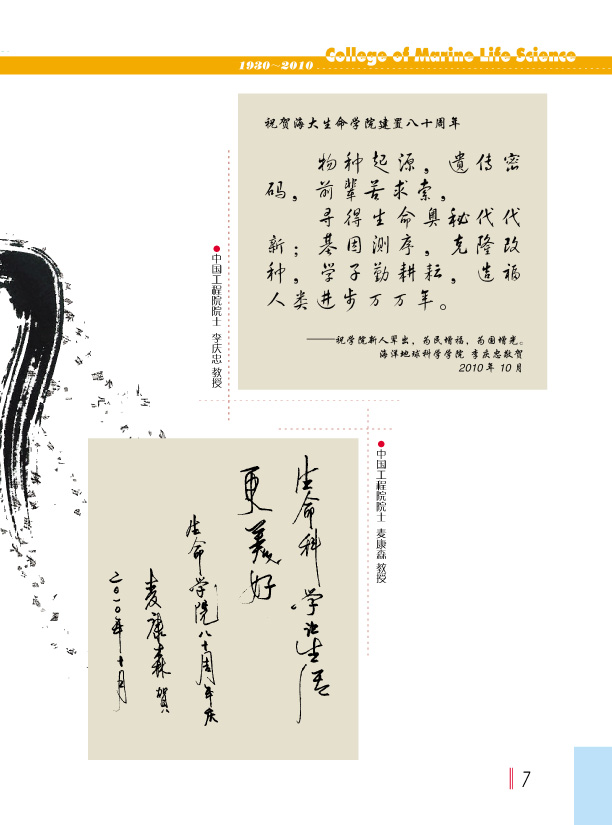 College of Marine Life Science
1930～2010
祝贺海大生命学院建置八十周年
物种起源，遗传密
码，前辈苦求索，
寻得生命奥秘代代
新；基因测序，克隆改
种，学子勤耕耘，造福
人类进步万万年。
——祝学院新人罩出，为民增福，为国增光。
海洋地球科学学院 李庆忠敬贺
2010 年 10 月
中国工程院院士 李庆忠 教授
中国工程院院士 麦康森 教授
生命科学让生活
更美好
生命学院八十周年庆
麦康森 贺
二〇一〇年十月
7